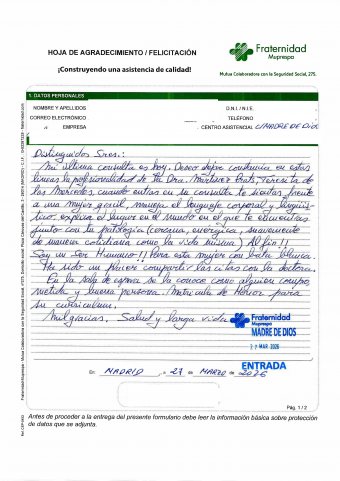 HOJA DE AGRADECIMIENTO / FELICITACIÓN
¡Construyendo una asistencia de calidad!
Fraternidad
Muprespa
Mutua Colaboradora con la Seguridad Social, 275.
1. DATOS PERSONALES
NOMBRE Y APELLIDOS
D.N.I./N.I.E.
CORREO ELECTRÓNICO
TELÉFONO
EMPRESA
CENTRO ASISTENCIAL C/MADRE DE DIOS
Distinguidos Sres.:
Mi última consulta es hoy. Deseo dejar constancia en estas
líneas la profesionalidad de la Dra. Martínez Teresita de
las Mercedes, cuando entras en su consulta te sientas frente
a una mujer grácil, maneja el lenguaje corporal y lingüís-
tico, explica el lugar en el mundo en el que te encuentras
junto con tu patología (cercana, enérgica, suavemente
de manera cotidiana como la vida misma) Al fin!!
Soy un Ser Humano!! Para esta mujer con bata blanca.
Ha sido un placer compartir las citas con la doctora.
En la sala de espera se la conoce como alguien compro
metida y buena persona. Matrícula de Honor para
su currículum.
Mil gracias. Salud y larga vida
Fraternidad
Muprespa
MADRE DE DIOS
27 MAR 2026
ENTRADA
En MADRID, a 27 de MARZO de 2026
Pág. 1 / 2
Antes de proceder a la entrega del presente formulario debe leer la información básica sobre protección
de datos que se adjunta.